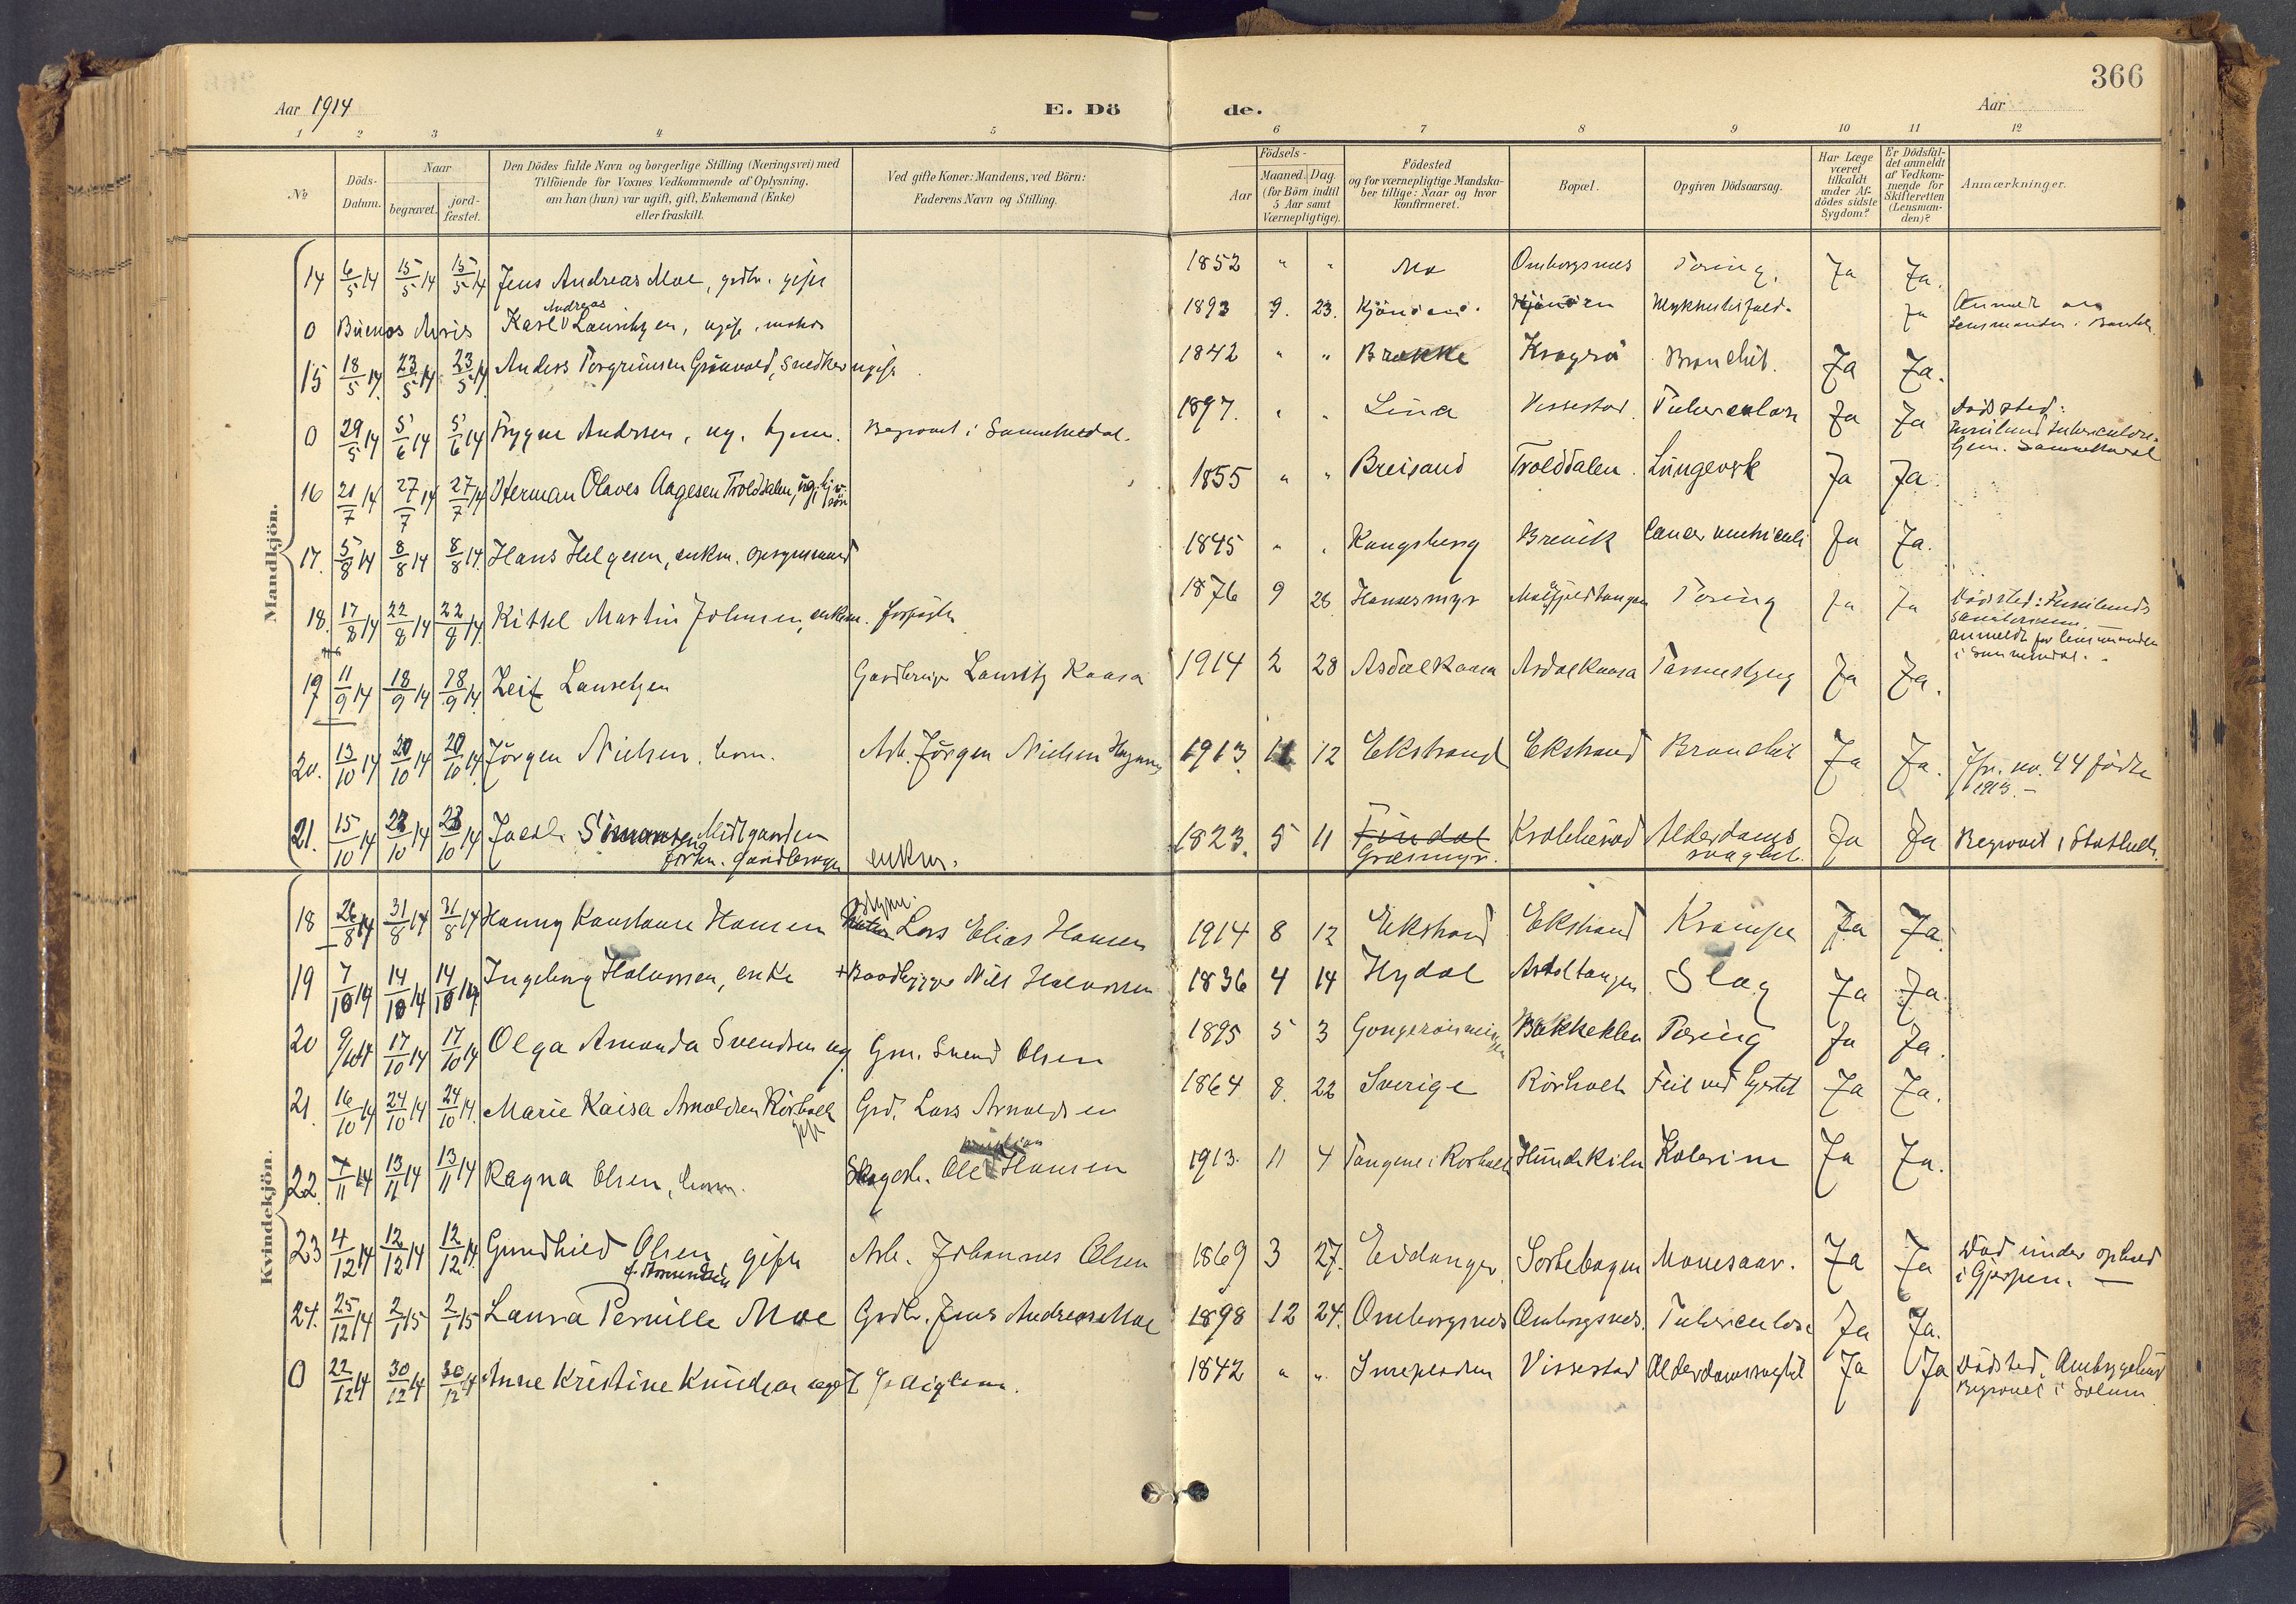 366
Aar 1914
E. Dö de.
Aar
1 2 3 4 5 6 7 8 9 10 11 12
No
Döds-Datum.
Naar
begravet.
jord-fæstet.
Den Dödes fulde Navn og borgerlige Stilling (Næringsvei) med
Tilföiende for Voxnes Vedkommende af Oplysning.
om han (hun) var ugift, gift, Enkemand (Enke)
eller fraskilt.
Ved gifte Koner: Mandens, ved Börn:
Faderens Navn og Stilling.
Födsels-
Aar
Maaned. Dag.
(for Börn indtil
5 Aar samt
Værnepligtige).
Födested
og for værnepligtige Mandska-
ber tillige: Naar og hvor
konfirmeret.
Bopæl.
Opgiven Dödsaarsag.
Har Læge
været
tilkaldt
under Af-
dödes sidste
Sygdom?
Er Dödsfal-
det anmeldt
af Vedkom-
mende for
Skifteretten
(Lensman-
den)?
Anmærkninger.
Mandkjön.
14 6/5 14 15/5 14 15/5 14 Jens Andreas Moe, grdbr. gift 1852 " " Mo Omborgsnes Tæring. Ja Ja.
0 Buenos Airis Karl Andreas Lauritzen, ugift, matros 1893 9. 23. Kjönsen Ja
15 18/5 14 23/5 14 23/5 14 Anders Torgrimsen Grönvold, Snedker ugift 1842 " " Brække Kragerö Bronchit. Ja Ja.
0 29/5 14 5/6 14 5/6 14 Trygve Andrsen, ug. hjem. Begravet i Sannikedal. 1897. " " Lina Vissestad Tuberculose Ja Ja Dödsted:
16 21/7 14 27/7 14 27/7 14 Herman Olaves Aagesen Trolddalen, ug. 1855 " " Breisand Trolddalen. Lungeorsk Ja Ja.
17. 5/8 14 8/8 14 8/8 14. Hans Helgesen, enkm. opsynsmand 1845 " " Kongsberg Brevik Cancer ventriculi Ja Ja.
18. 17/8 14 22/8 14 22/8 14. Kittel Martin Johnsen, enkem. forpagter 1876 9 26 Hansesmyr Tæring Ja Ja Dödsted:
anmeldt for lensmanden
19 11/9 14 18/9 14 18/9 14. Leif Lauritzen Gaardbruger Lauritz Kaasa 1914 2 28 Asdalkaasa Asdalkaasa Ja Ja.
20. 13/10 14 20/10 14 20/10 14 Jörgen Nielsen, barn. Arb. Jörgen Nielsen 1913. 11 12 Ekstrand Ekstrand Bronchit Ja Ja. Jfr. no. 44 fødte
1913.–
21. 15/10 14 23/10 14 23/10 14 Jacob Simonsen Midtgaarden
forhn. gaardbruger enkm. 1823. 5 11 Findal
Græsmyr. Krabberöd Alderdoms
svaghed. Ja Ja Begravet i Stathelle.
Kvindekjön.
18 26/8 14 31/8 14 31/8 14 Hanny Konstanse Hansen Lars Elias Hansen 1914 8 12 Ekstrand Ekstrand Krampe Ja Ja.
19 7/10 14 14/10 14 14/10 14 Ingeborg Halvorsen, enke + Baadbygger Nils Halvorsen 1836 4 14 Hydal Asdaltangen Slag Ja Ja.
20 9/10 14 17/10 14 17/10 14 Olga Amanda Svendsen ug. Gm. Svend Olsen 1895 5 3 Bakkeklev Tæring Ja Ja.
21. 16/10 14 24/10 14 24/10 14. Marie Kaisa Arnoldsen Rörholt
gift Grd. Lars Arnoldsen 1864. 8. 22 Sverige Rörholt Feil ved hjertet Ja Ja.
22. 7/11 14 13/11 14 13/11 14 Ragna Olsen, barn. Ole Hansen 1913. 11 4 Tangene i Rörholt Hundekiln Kolerine Ja Ja.
23 4/12 14 12/12 14 12/12 14. Gundhild Olsen gift
f. Amundsen Arb. Johannes Olsen 1869 3 27. Eidanger Mavesaar. Ja Ja Död under ophold
i Gjerpen. —
24. 25/12 14 2/1 15 2/1 15 Laura Pernille Moe Grdb. Jens Andreas Moe 1898 12 24. Omborgsnes Omborgsnes. Tuberculose Ja Ja.
0 22/12 14 30/12 14 30/12 14 Anne Kristine Knudsen ugift Fattiglem. 1842 " " Vissestad Alderdomssvaghed Ja Ja Dödsted,
Begravet i Solum